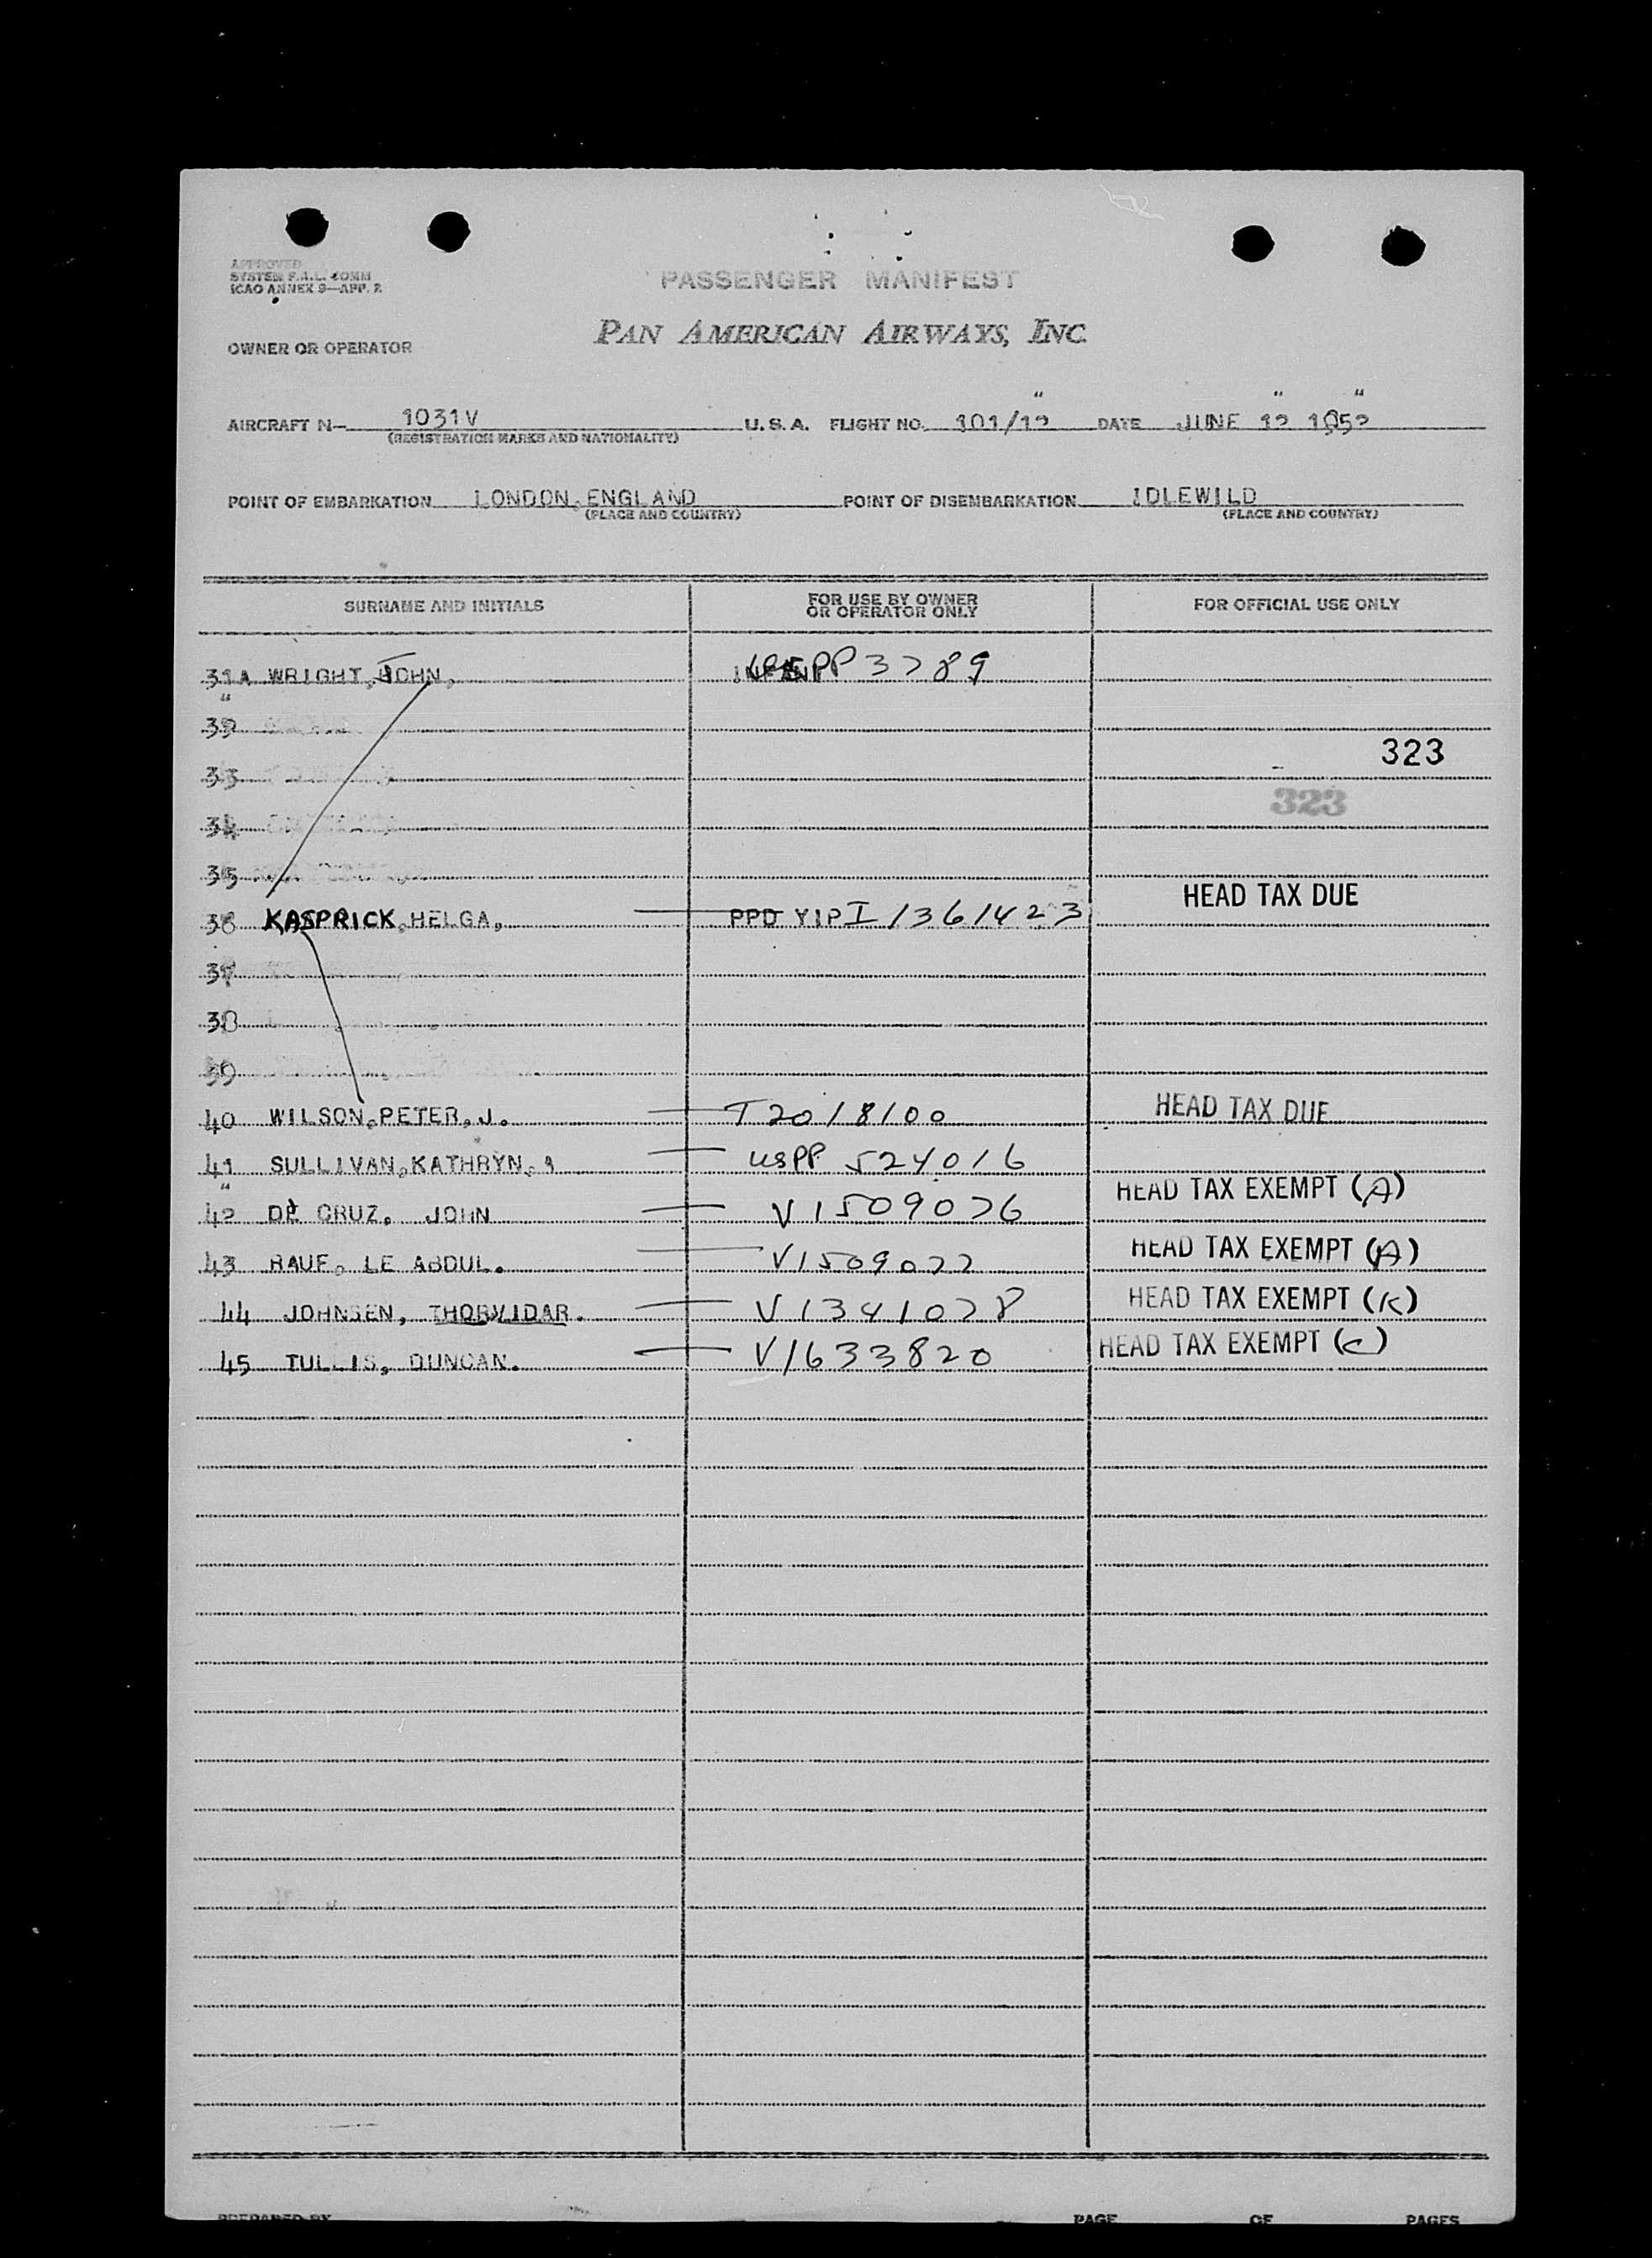 APPROVED
SYSTEM F.A.L. COMM
ICAO ANNEX 9—APP. 2
PASSENGER MANIFEST
OWNER OR OPERATOR PAN AMERICAN AIRWAYS, INC.
AIRCRAFT N— 1031V U.S.A. FLIGHT NO. 101/12 DATE JUNE 12 1952
(REGISTRATION MARKS AND NATIONALITY)
POINT OF EMBARKATION LONDON, ENGLAND POINT OF DISEMBARKATION IDLEWILD
(PLACE AND COUNTRY) (PLACE AND COUNTRY)
SURNAME AND INITIALS FOR USE BY OWNER OR OPERATOR ONLY FOR OFFICIAL USE ONLY
31A WRIGHT, JOHN, INFANT USPP 3789
32
33 323
34 323
35
36 KASPRICK, HELGA, PPD YIP I 1361423 HEAD TAX DUE
37
38
39
40 WILSON, PETER, J. T2018100 HEAD TAX DUE
41 SULLIVAN, KATHRYN, USPP 524016
42 DE CRUZ, JOHN V1509076 HEAD TAX EXEMPT (A)
43 RAUF, LE ABDUL. V1509077 HEAD TAX EXEMPT (A)
44 JOHNSEN, THORVIDAR. V1341078 HEAD TAX EXEMPT (K)
45 TULLIS, DUNCAN. V1633820 HEAD TAX EXEMPT (C)
PREPARED BY PAGE OF PAGES